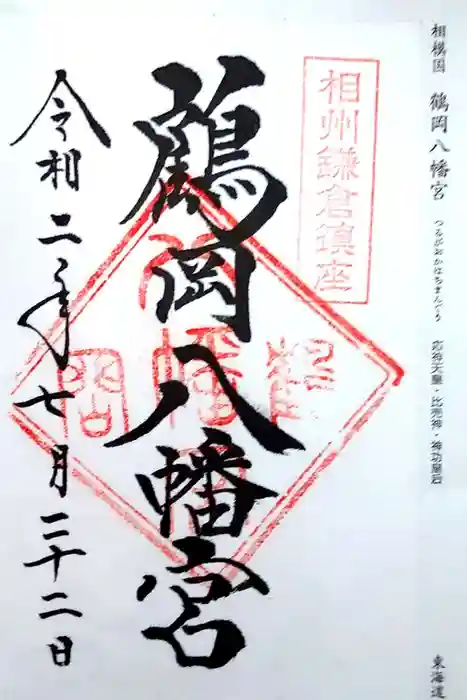 相模国 鶴岡八幡宮 つるがおかはちまんぐう 応神天皇・比売神・神功皇后 東海道
相州鎌倉鎮座
鶴岡八幡宮
令和二年七月二十二日